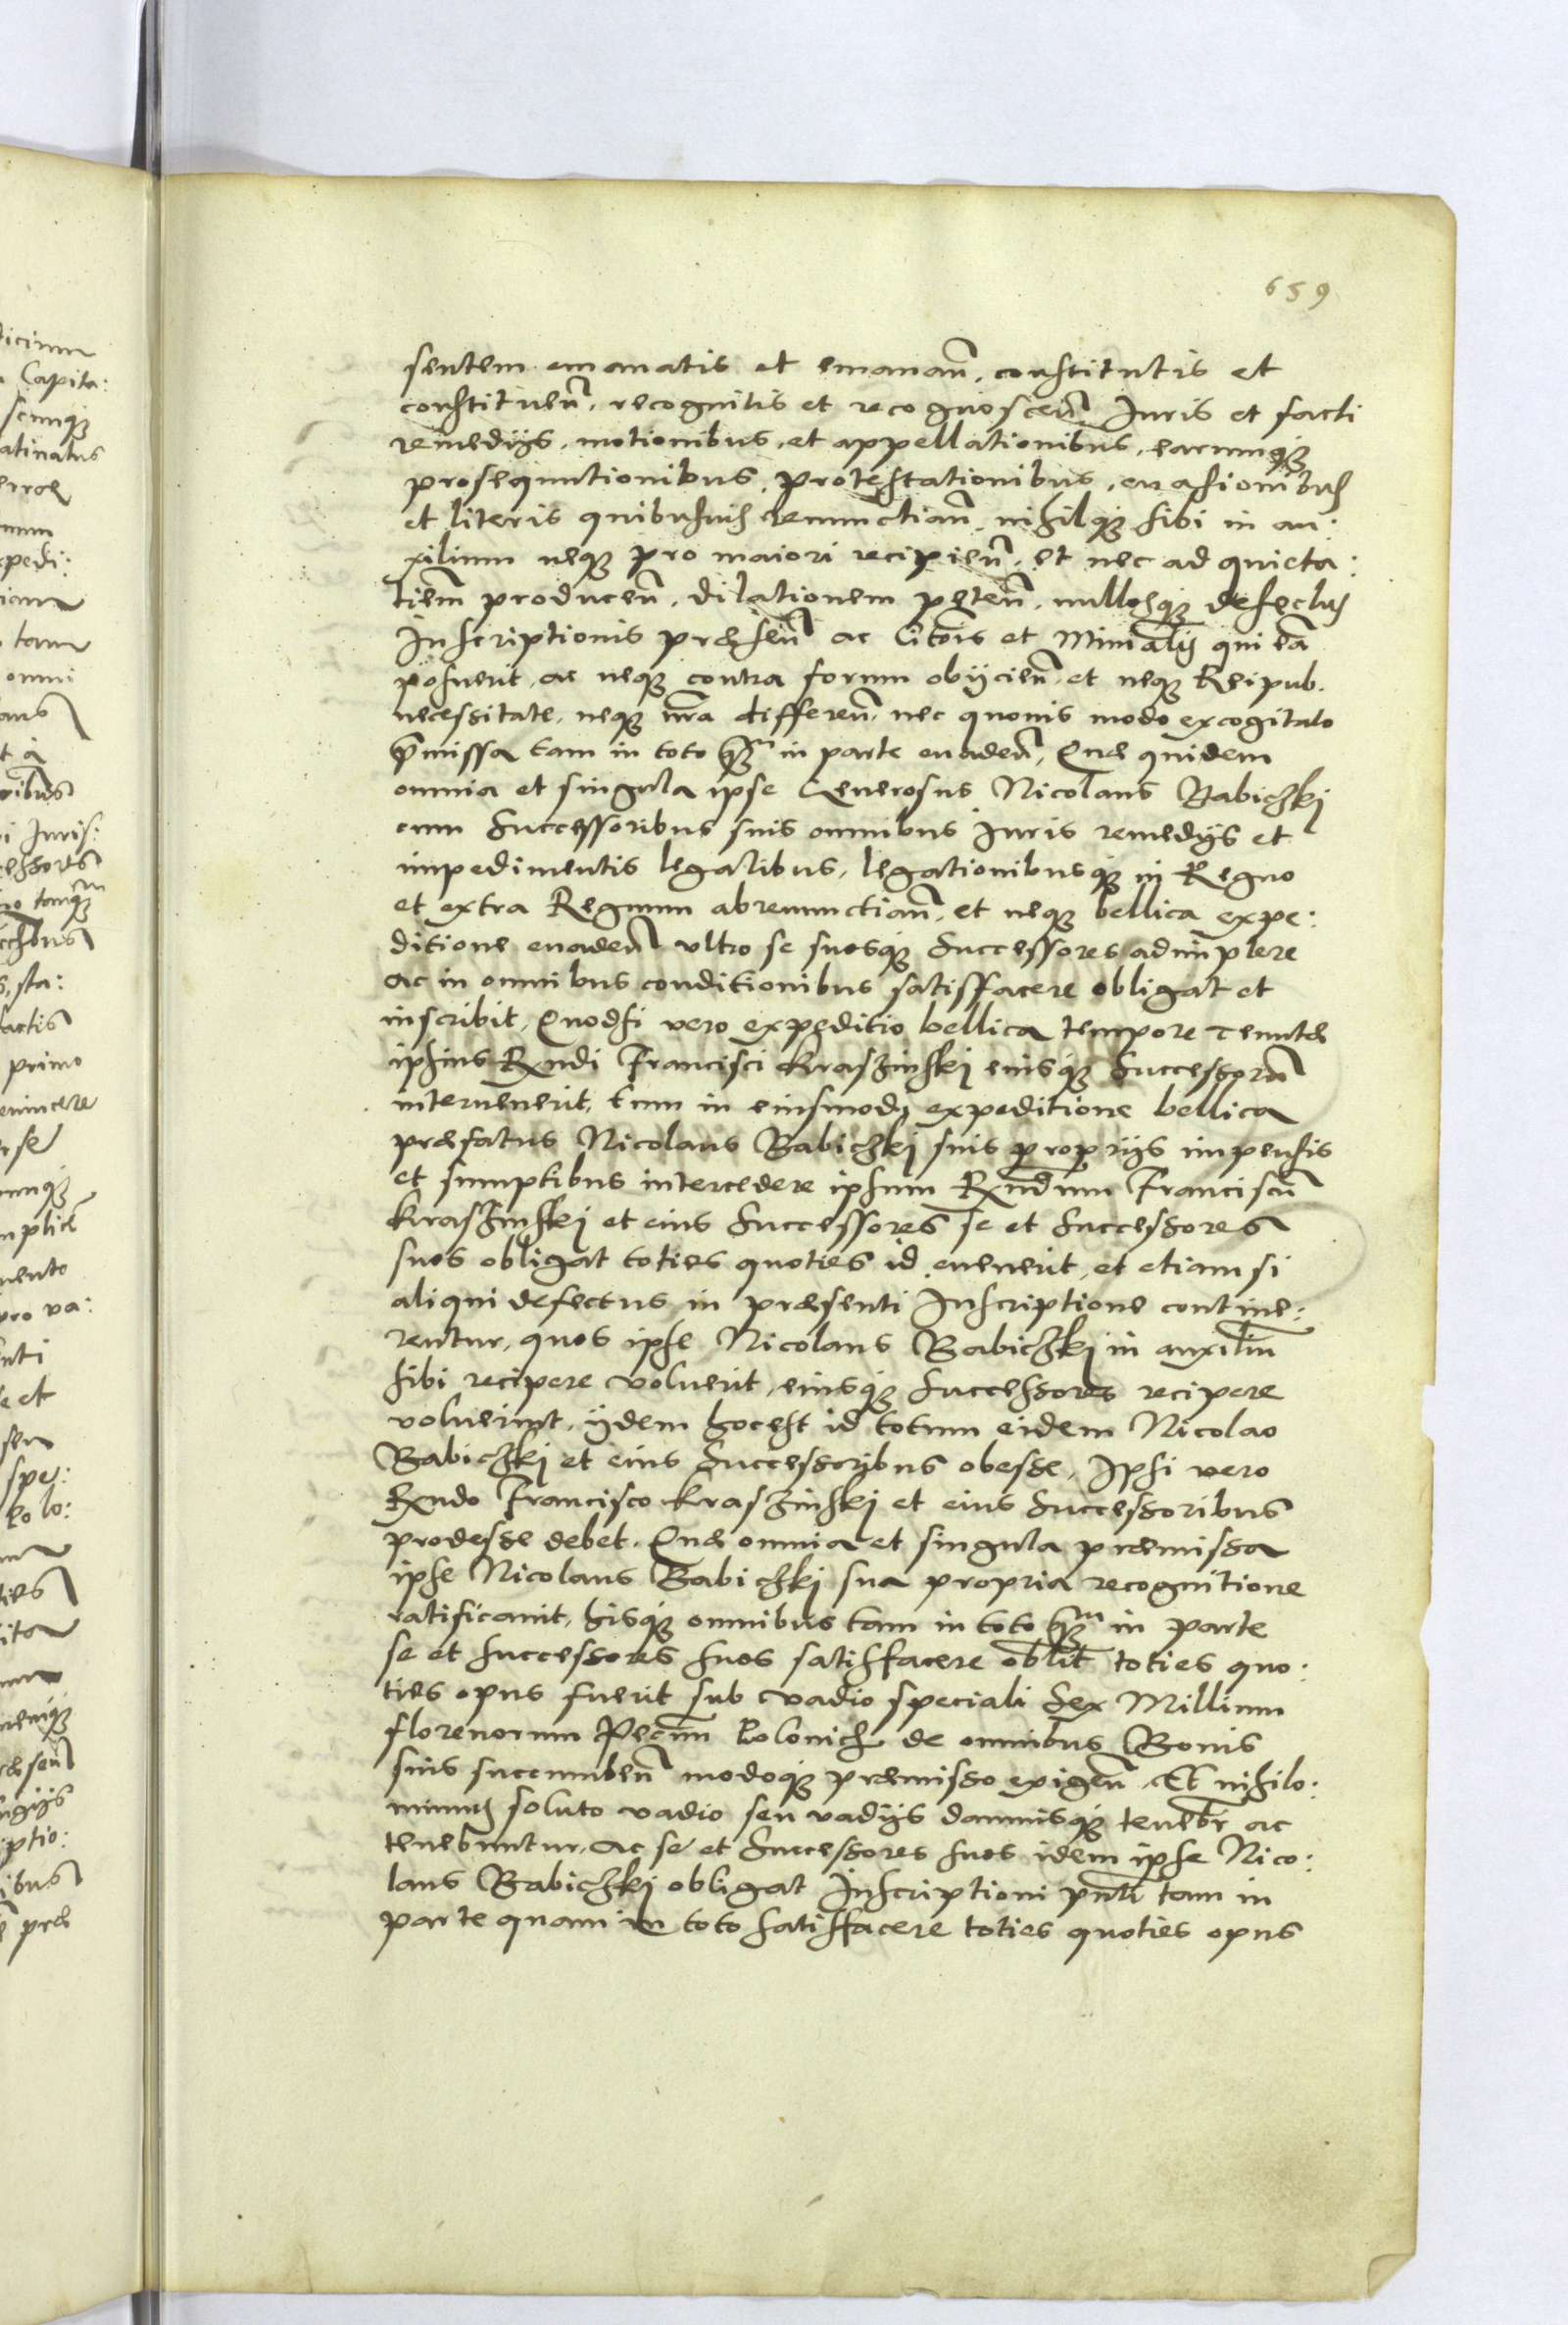 659
sentem emanatis et emanan̄, constitutis et
constituen̄, recognitis et recognoscen̄ Iuris et facti
remedijs, motionibus, et appellationibus, earumq́ꝫ
prosequutionibus, protestationibus, euasionibus
et literis quibusuis renunctian̄, nihilq́ꝫ sibi in au:
xilium neqꝫ pro maiori recipien̄, et nec ad quieta:
tiem̄ producen̄, dilationem peten̄, nullosq́ꝫ defectus
Inscriptionis præsen̄ ac Citōis et Minīalis qui ea
posuerit, ac neqꝫ contra forum obijcien̄, et neqꝫ Reipub.
necessitate, neqꝫ mr̄a differen̄, nec quouis modo excogitato
p̄missa tam in toto qꝫm in parte euaden̄, Quæ quidem
omnia et singula ipse Generosus Nicolaus Babiczkj
cum Successoribus suis omnibus Iuris remedijs et
impedimentis legalibus, legationibusq́ꝫ in Regno
et extra Regnum abrenunctian̄, et neqꝫ bellica expe:
ditione euaden̄ vltro se suosq́ꝫ Successores adimplere
ac in omnibus conditionibus satisfacere obligat et
inscribit, Quodsi vero expeditio bellica tempore tenutæ
ipsius Rn̄di Francisci Kraszinskj eiusq́ꝫ Successorū
interuenerit, tum in eiusmodj expeditione bellica
præfatus Nicolaus Babiczkj suis proprijs impensis
et sumptibus intercedere ipsum Rn̄dum Franciscū
Kraszinskj et eius Successores se et Successores
suos obligat toties quoties id euenerit, et etiam si
aliqui defectus in præsenti Inscriptione contine:
rentur, quos ipse Nicolaus Babiczkj in auxiliū
sibi recipere voluerit, eiusq́ꝫ Successores recipere
voluerint, ijdem hocest id totum eidem Nicolao
Babiczkj et eius Successoribus obesse, Ipsi vero
Rn̄do Francisco Krasziinskj et eius Successoribus
prodesse debet. Quæ omnia et singula præmissa
ipse Nicolaus Babiczkj sua propria recognitione
ratificauit, hisq́ꝫ omnibus tam in toto qꝫm in parte
se et Successores suos satisfacere obl̄it toties quo:
ties opus fuerit sub vadio speciali Sex Millium
florenorum Pecun̄ Polonicꝫ de omnibus Bonis
suis succumben̄ modoq́ꝫ præmisso exigen̄. Et nihilo:
minus soluto vadio seu vadijs damnisq́ꝫ tenebr̄ ac
tenebuntur, ac se et Successores suos idem ipse Nico:
laus Babiczkj obligat Inscriptioni pn̄ti tam in
parte quam in toto satisfacere toties quoties opus